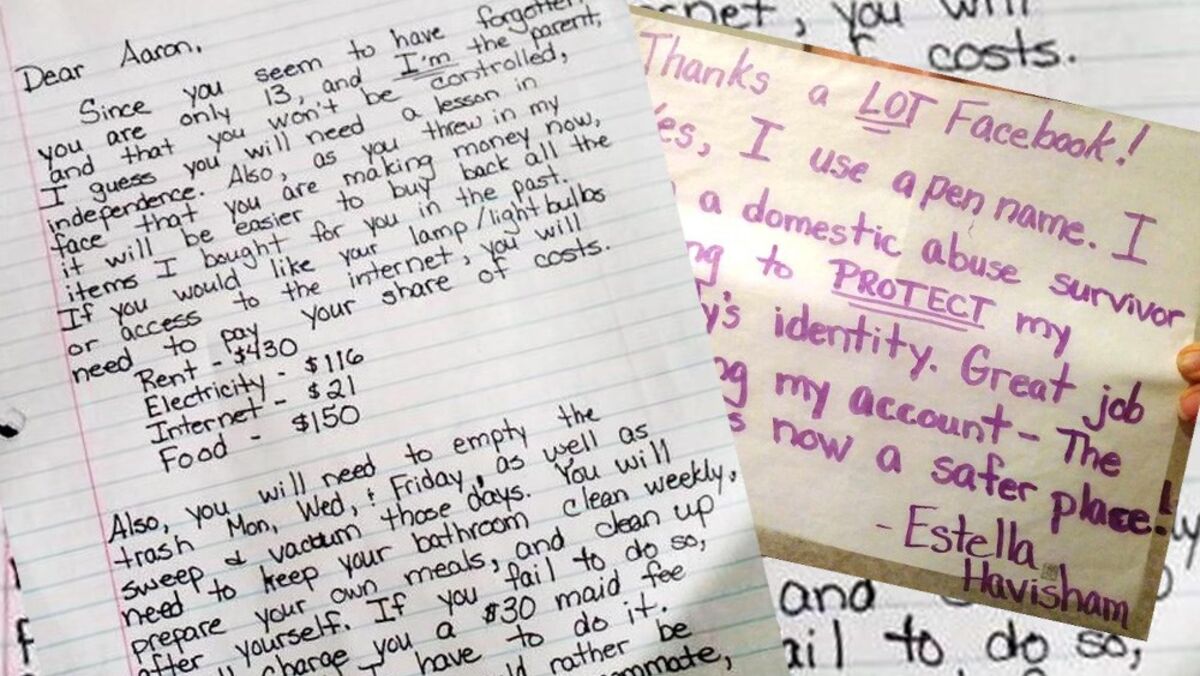 Dear Aaron,
Since you seem to have forgotten
you are only 13, and I'm the parent,
and that you won't be controlled,
I guess you will need a lesson in
independence. Also, as you threw in my
face that you are making money now,
it will be easier to buy back all the
items I bought for you in the past.
If you would like your lamp/lightbulbs
or access to the internet, you will
need to pay your share of costs.
Rent - $430
Electricity - $116
Internet - $21
Food - $150
Also, you will need to empty the
trash Mon, Wed, & Friday, as well as
sweep & vacuum those days. You will
need to keep your bathroom clean weekly,
prepare your own meals, and clean up
after yourself. If you fail to do so,
charge you a $30 maid fee
have to do it.
rather be
you will
costs.
Thanks a LOT Facebook!
I use a pen name. I
a domestic abuse survivor
to PROTECT my
identity. Great job
my account - The
now a safer place!
- Estella
Havisham
and
to do so,